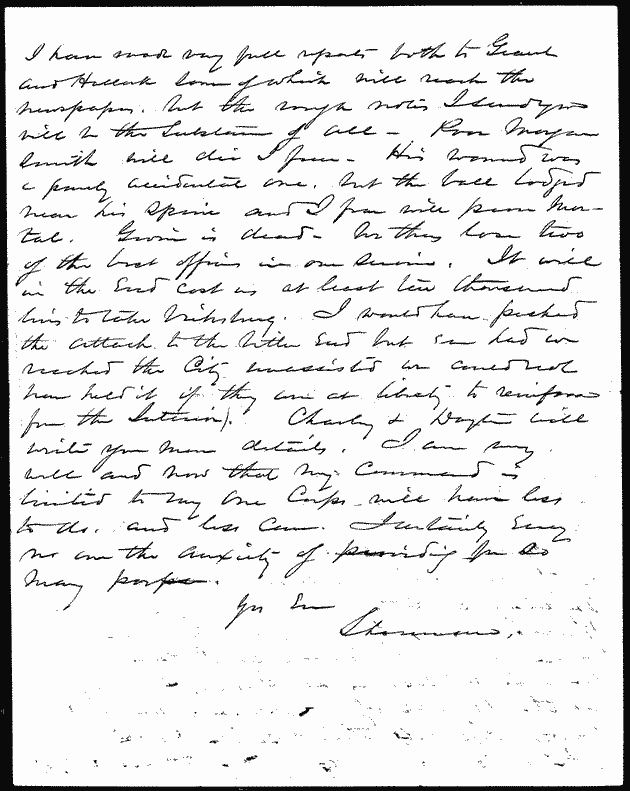 I have made very full reports both to Grant
and Halleck some of which will reach the
newspapers. but the rough notes I send you
will be the Substance of all — Poor Morgan
Smith will die I fear — His wound was
a purely accidental one. but the ball lodged
near his Spine and I fear will prove Mor-
tal. Gwin is dead — We thus lose two
of the best officers in our Service. It will
in the End cost us at least ten thousand
lives to take Vicksburg. I would have pushed
the attack to the bitter End but even had we
reached the City unassisted we could not
have held it if they are at liberty to reinforce
from the Interior. Charley & Dayton will
write you more details. I am very
well and now that my Command is
limited to my One Corps will have less
to do. and less Care. I certainly Envy
no one the anxiety of providing for so
many
Yrs Ever
Sherman.